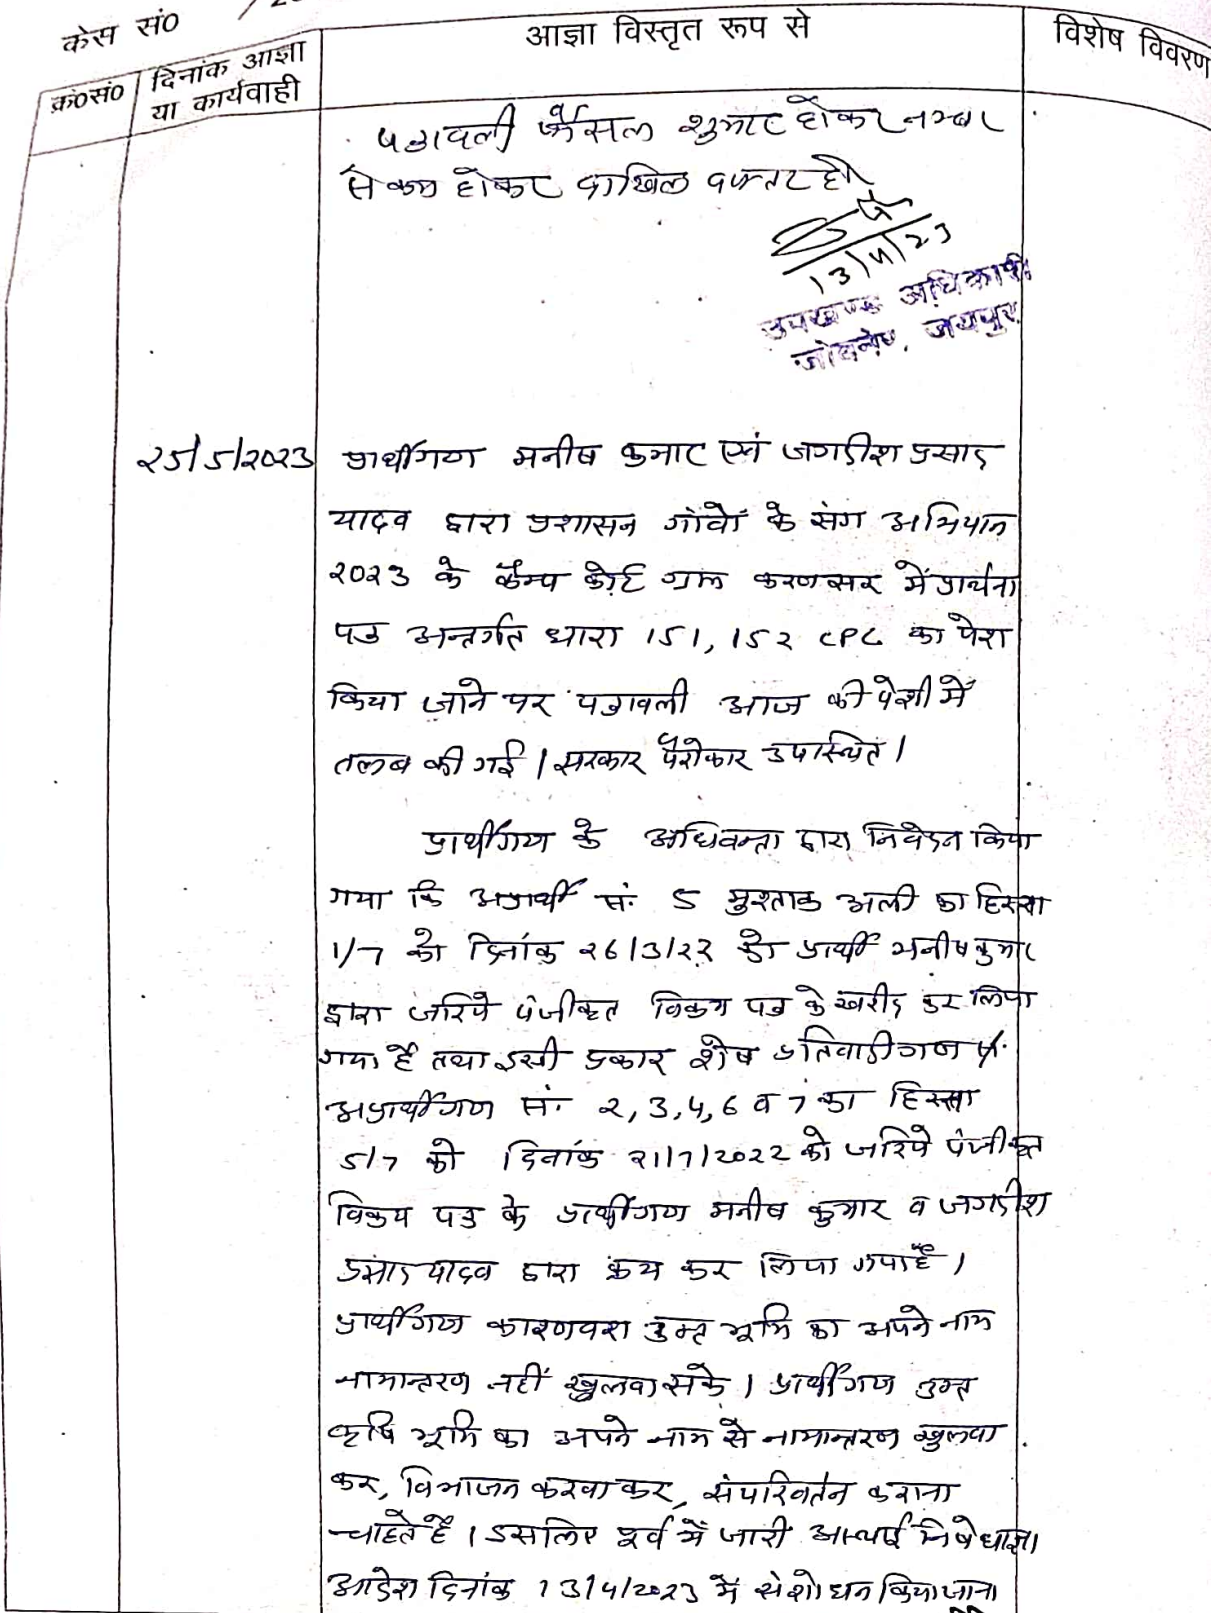 केस सं०
क्र०सं०
दिनांक आज्ञा
या कार्यवाही
आज्ञा विस्तृत रूप से
विशेष विवरण
पत्रावली फैसल शुमार होकर नम्बर
से कम होकर दाखिल दफ्तर हो
13/4/23
उपखण्ड अधिकारी
जोबनेर, जयपुर
25/5/2023
प्रार्थीगण मनीष कुमार एवं जगदीश प्रसाद
यादव द्वारा प्रशासन गांवों के संग अभियान
2023 के कैम्प कोर्ट ग्राम करणसर में प्रार्थना
पत्र अन्तर्गत धारा 151, 152 CPC का पेश
किया जाने पर पत्रावली आज की पेशी में
तलब की गई। सरकार पैरोकार उपस्थित।
प्रार्थीगण के अधिवक्ता द्वारा निवेदन किया
गया कि अप्रार्थी सं. 5 मुश्ताक अली का हिस्सा
1/7 को दिनांक 26/3/22 को प्रार्थी मनीष कुमार
द्वारा जरिये पंजीकृत विक्रय पत्र के खरीद कर लिया
गया है तथा इसी प्रकार शेष प्रतिवादीगण
अप्रार्थीगण सं. 2, 3, 4, 6 व 7 का हिस्सा
5/7 को दिनांक 21/7/2022 को जरिये पंजीकृत
विक्रय पत्र के प्रार्थीगण मनीष कुमार व जगदीश
प्रसाद यादव द्वारा क्रय कर लिया गया है।
प्रार्थीगण कारणवश उक्त भूमि का अपने नाम
नामान्तरण नहीं खुलवा सके। प्रार्थीगण उक्त
कृषि भूमि का अपने नाम से नामान्तरण खुलवा
कर, विभाजन करवा कर, संपरिवर्तन कराना
चाहते है। इसलिए पूर्व में जारी अस्थाई निषेधाज्ञा
आदेश दिनांक 13/4/2023 में संशोधन किया जाना